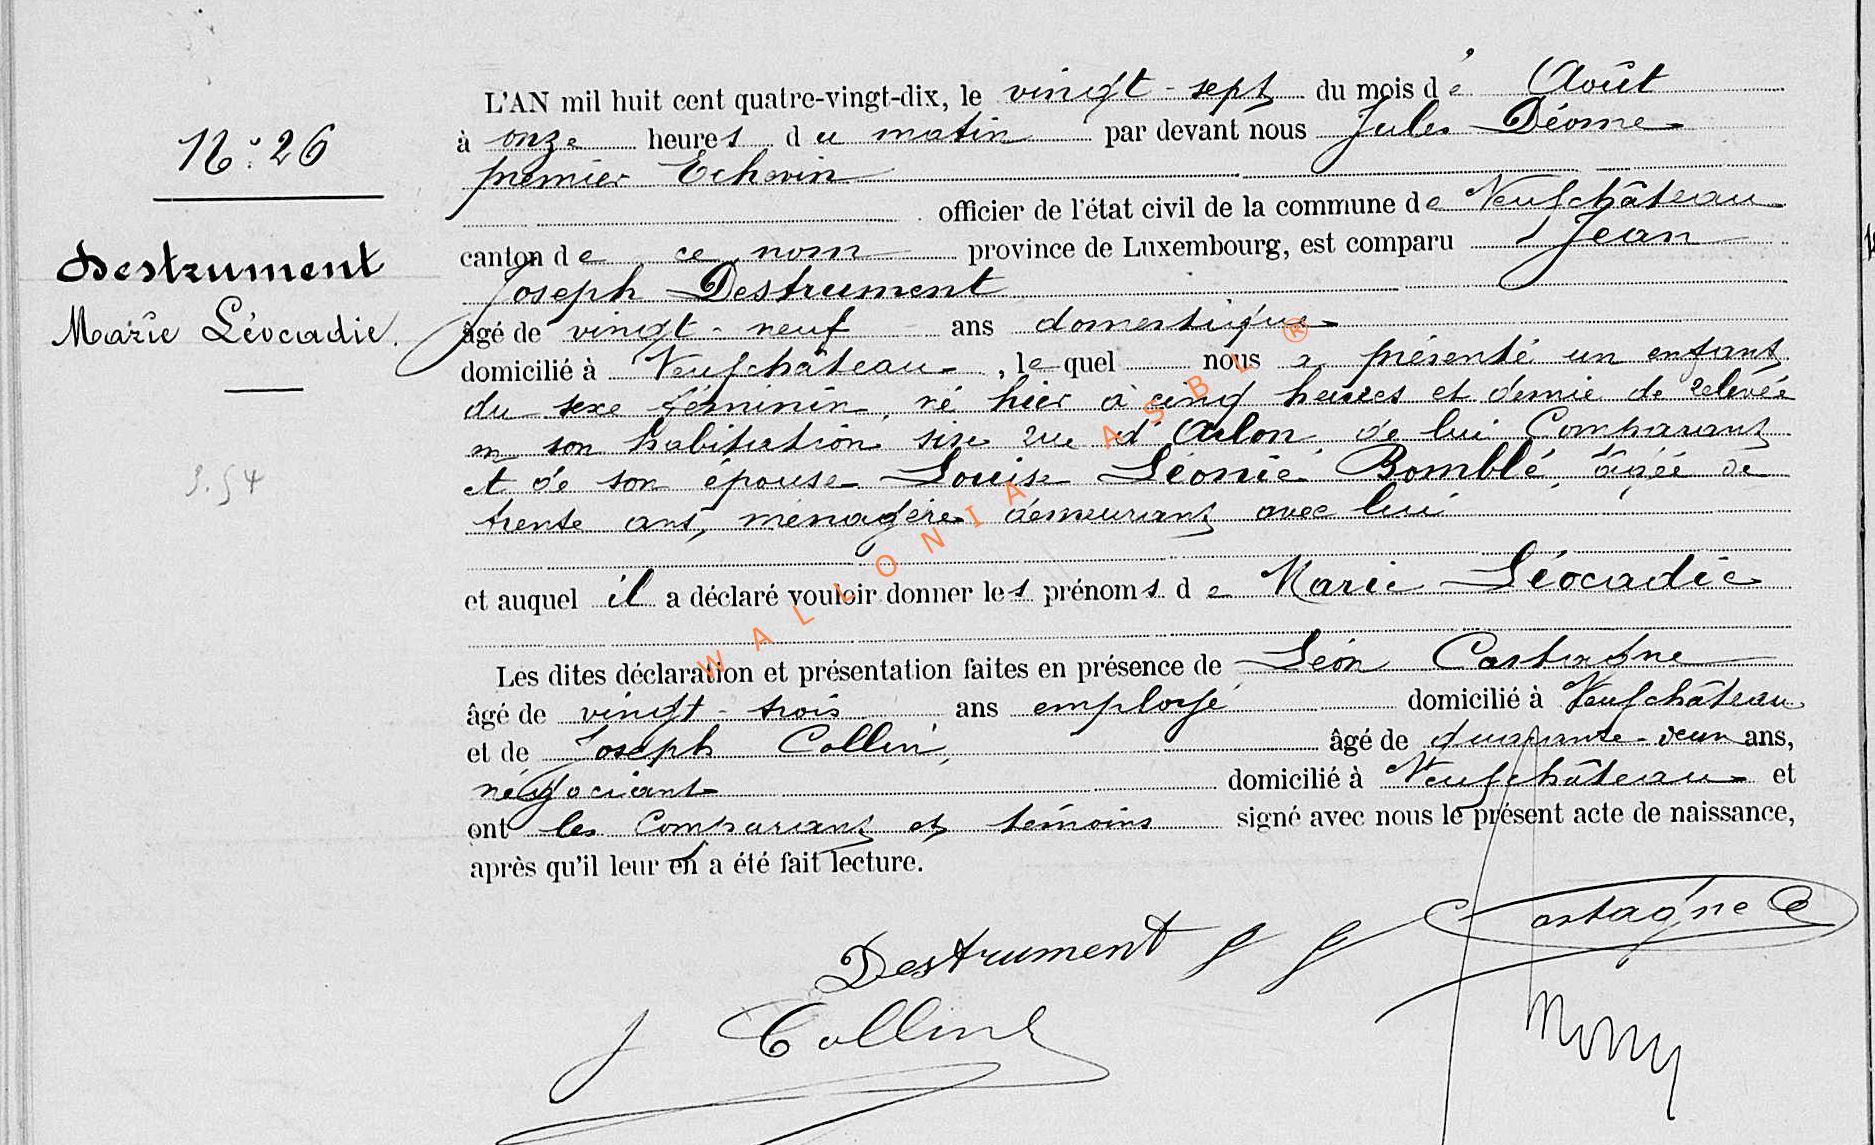 N° 26
Destrument
Marie Léocadie.
L'AN mil huit cent quatre-vingt-dix, le vingt-sept du mois de Août
à onze heures du matin par devant nous Jules Déome
premier Echevin
officier de l'état civil de la commune de Neufchâteau
canton de ce nom province de Luxembourg, est comparu Jean
Joseph Destrument
âgé de vingt-neuf ans domestique
domicilié à Neufchâteau, lequel nous a présenté un enfant
du sexe féminin, né hier à cinq heures et demie de relevée
en son habitation sise rue d'Arlon de lui Comparant
et de son épouse Louise Léonie Bomblé, âgée de
trente ans, ménagère demeurant avec lui
et auquel il a déclaré vouloir donner les prénoms de Marie Léocadie
Les dites déclaration et présentation faites en présence de Léon Castagne
âgé de vingt-trois ans employé domicilié à Neufchâteau
et de Joseph Collin, âgé de quarante-deux ans,
négociant domicilié à Neufchâteau et
ont les Comparant et témoins signé avec nous le présent acte de naissance,
après qu'il leur en a été fait lecture.
Destrument J J Castagne
J Collin
WALLONIA ASBL ®